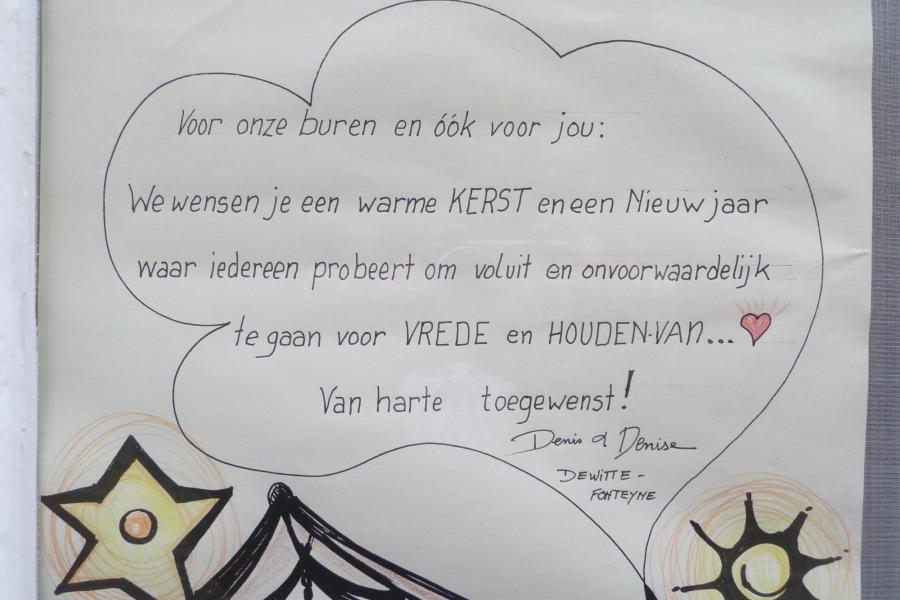 Voor onze buren en óók voor jou:
We wensen je een warme KERST en een Nieuwjaar
waar iedereen probeert om voluit en onvoorwaardelijk
te gaan voor VREDE en HOUDEN-VAN...
Van harte toegewenst!
Denis & Denise
DEWITTE -
FONTEYNE